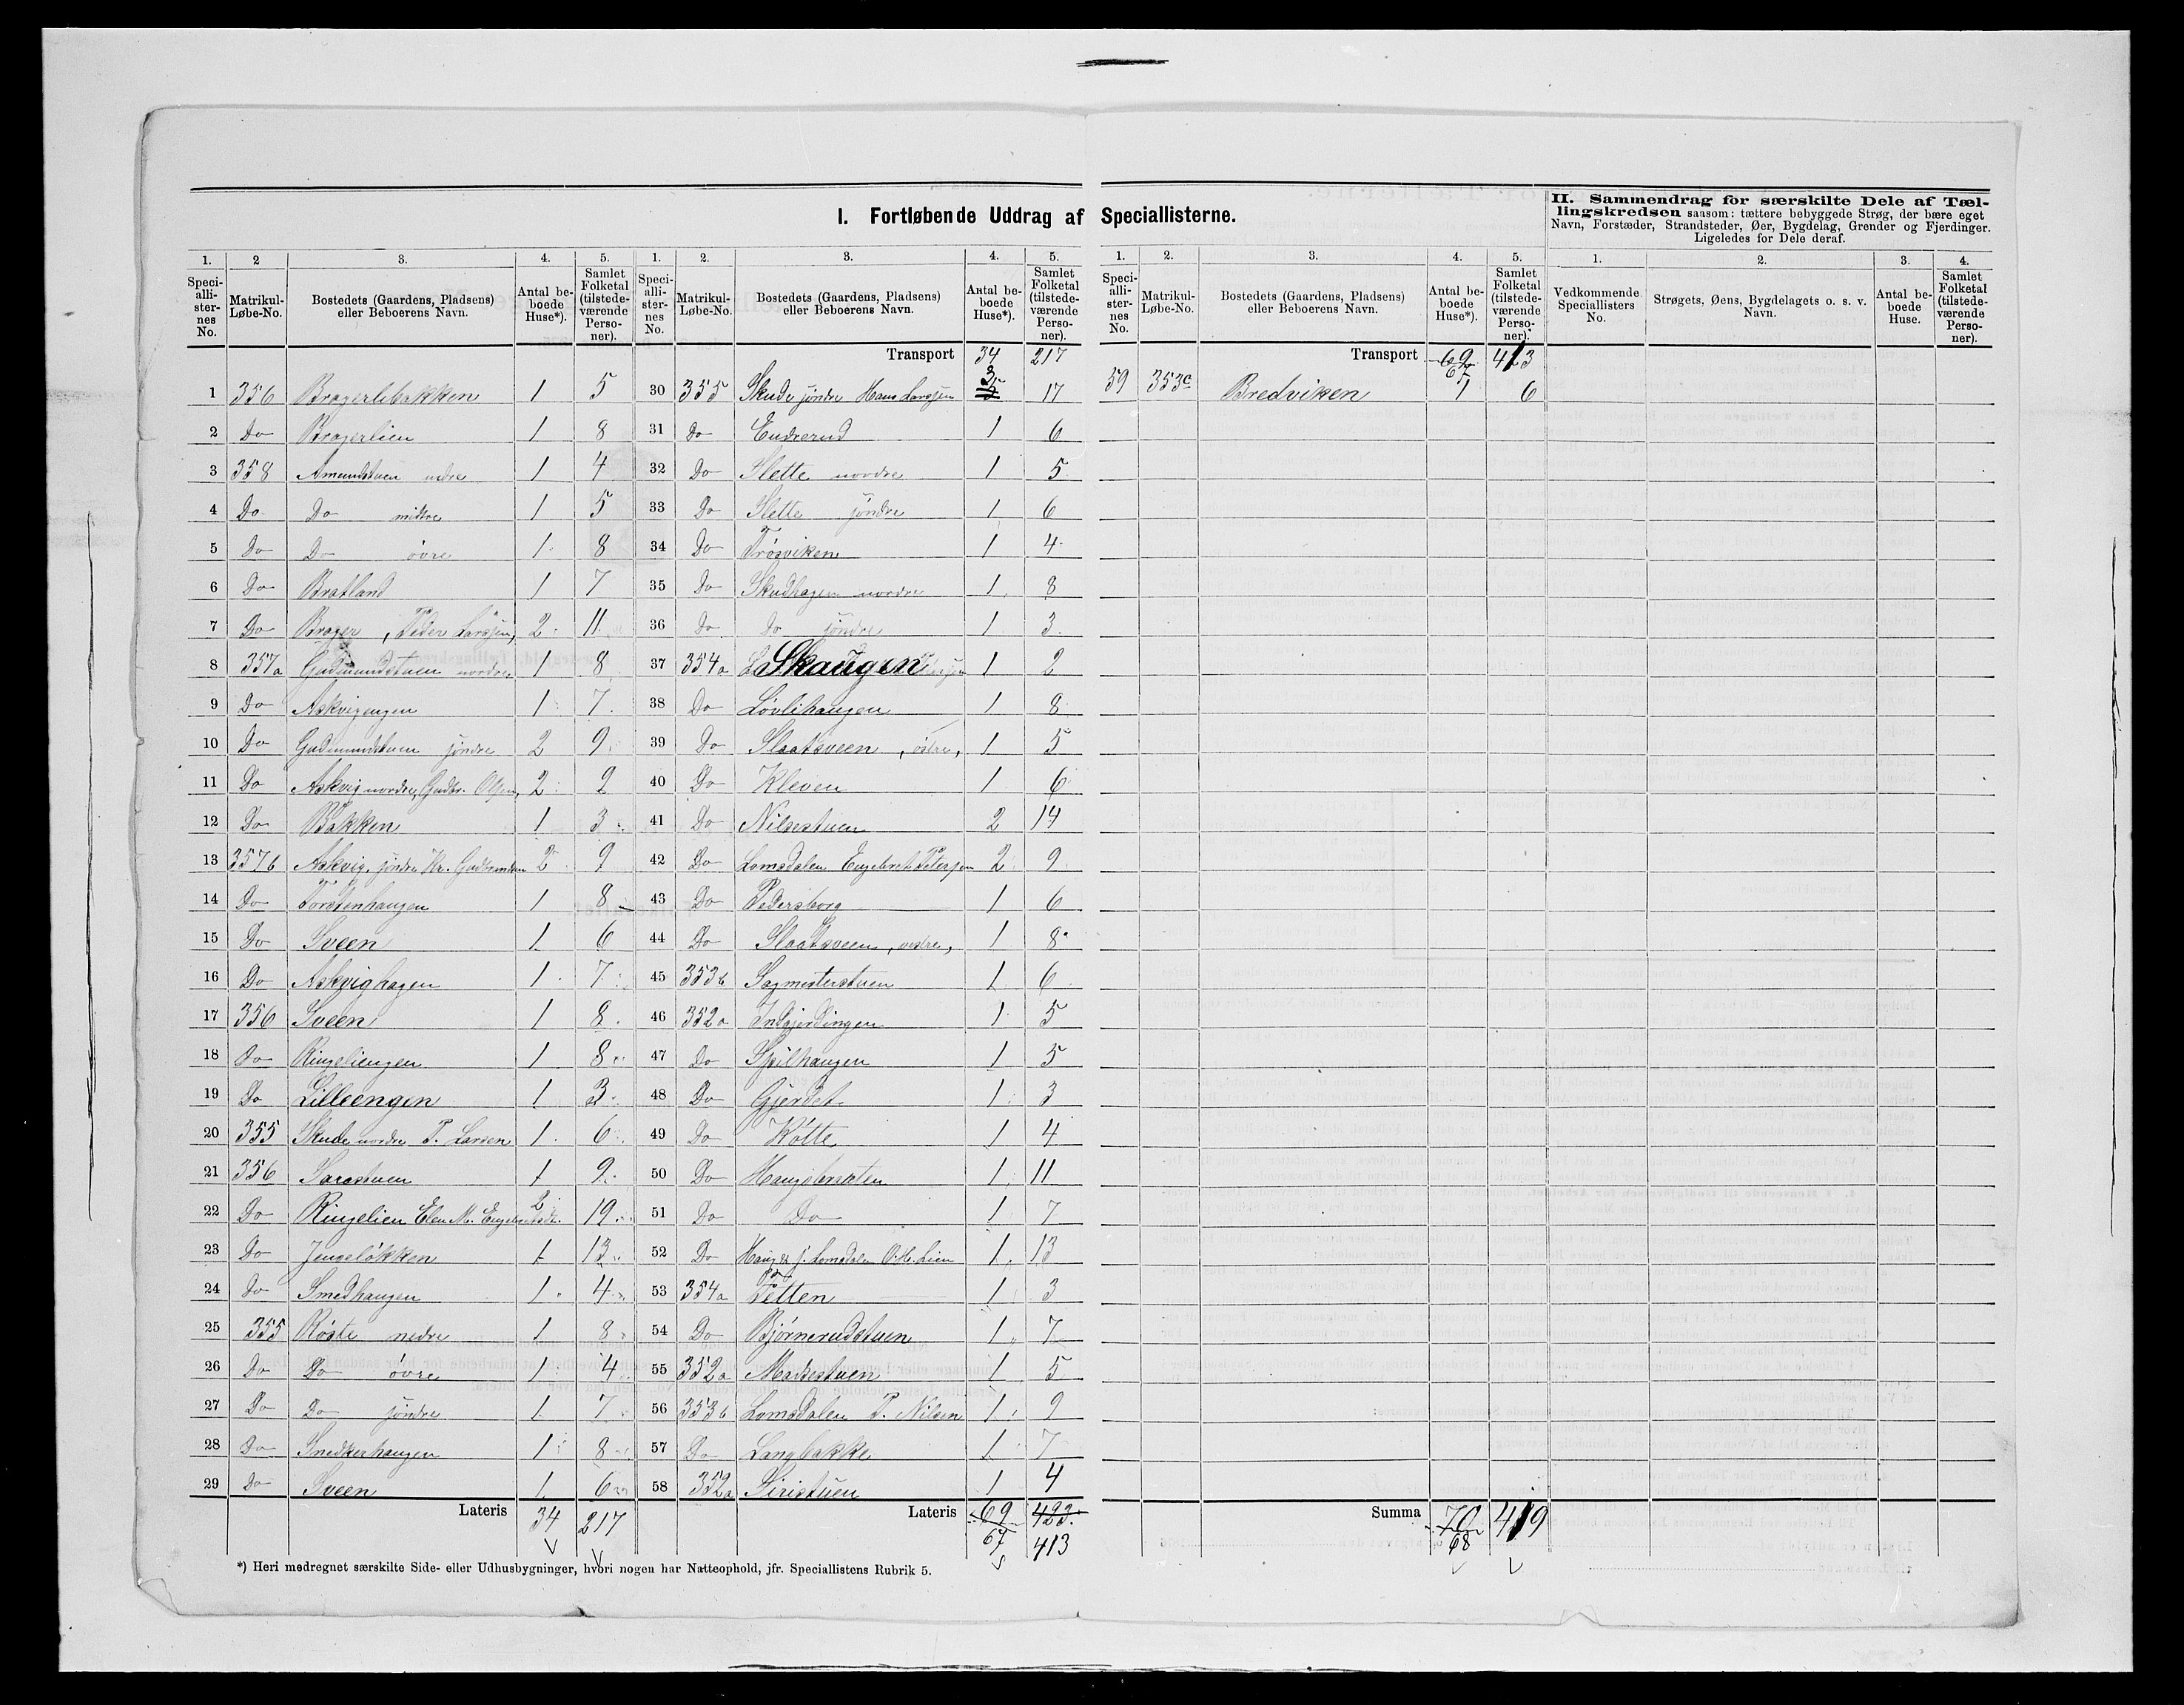 I. Fortløbende Uddrag af Speciallisterne.
II. Sammendrag for særskilte Dele af Tæl-
lingskredsen saasom: tættere bebyggede Strøg, der bære eget
Navn, Forstæder, Strandsteder, Øer, Bygdelag, Grender og Fjerdinger.
Ligeledes for Dele deraf.
1. 2 3. 4. 5.
Speciallisternes No. Matrikul-Løbe-No. Bostedets (Gaardens, Pladsens) eller Beboerens Navn. Antal beboede Huse*). Samlet Folketal (tilstedeværende Personer).
1 356 Bragerlibakken 1 5
2 Do Bragerlien 1 8
3 358 Amundstuen nedre 1 4
4 Do Do midtre 1 5
5 Do Do øvre 1 8
6 Do Bratland 1 7
7 Do Brager, Peder Larsjen, 2 11
8 357a Gudmundstuen nordre 1 8
9 Do Askvigengen 1 7
10 Do Gudmundstuen søndre 2 9
11 Do Askvig nordre, Gudbr. Olsen, 2 9
12 Do Bakken 1 3
13 357b Askvig, søndre Kr. Gudbrandsen 2 9
14 Do Torstenhaugen 1 8
15 Do Sveen 1 6
16 Do Askvighagen 1 7
17 356 Sveen 1 8
18 Do Ringeliengen 1 8
19 Do Lilleengen 1 3
20 355 Skude nordre P. Larsen 1 6
21 356 Sarastuen 1 9
22 Do Ringelien Elen M. 2 19
23 Do Jengeløkken 1 13
24 Do Smedhaugen 1 4
25 355 Røste nedre 1 8
26 Do Do øvre 1 4
27 Do Do søndre 1 7
28 Do Snedkerhaugen 1 8
29 Do Sveen 1 6
Lateris 34 217
1. 2. 3. 4. 5.
Speciallisternes No. Matrikul-Løbe-No. Bostedets (Gaardens, Pladsens) eller Beboerens Navn. Antal beboede Huse*). Samlet Folketal (tilstedeværende Personer).
Transport 34 217
30 355 Skude søndre Hans Larsjen 3 17
31 Do Endrerud 1 6
32 Do Slette nordre 1 5
33 Do Slette søndre 1 6
34 Do Trøsviken 1 4
35 Do Skudhagen nordre 1 8
36 Do Do søndre 1 3
37 354a Skaugen 1 2
38 Do Løvlihaugen 1 8
39 Do Slaatsveen, østre, 1 5
40 Do Kleven 1 6
41 Do Nilsestuen 2 14
42 Do Lomsdalen Engebret Petersen 2 9
43 Do Pedersborg 1 6
44 Do Slaatsveen, vestre, 1 8
45 353b Sagmesterstuen 1 6
46 352a Indgjerdingen 1 5
47 Do Spilhaugen 1 5
48 Do Gjerdet 1 3
49 Do Køtte 1 4
50 Do Haugsbraaten 1 11
51 Do Do 1 7
52 Do 1 13
53 354a Tetten 1 3
54 Do Bjørnerudstuen 1 7
55 352a Markestuen 1 5
56 353b Lomsdalen P. Nilsen 1 9
57 Do Langbakke 1 7
58 352a Siristuen 1 4
Lateris 69 423
67 413
1. 2. 3. 4. 5.
Speciallisternes No. Matrikul-Løbe-No. Bostedets (Gaardens, Pladsens) eller Beboerens Navn. Antal beboede Huse*). Samlet Folketal (tilstedeværende Personer).
Transport 69 413
67
59 353c Bredviken 1 6
Summa 70 419
68
1. 2. 3. 4.
Vedkommende Speciallisters No. Strøgets, Øens, Bygdelagets o. s. v. Navn. Antal beboede Huse. Samlet Folketal (tilstedeværende Personer).
*) Heri medregnet særskilte Side- eller Udhusbygninger, hvori nogen har Natteophold, jfr. Speciallistens Rubrik 5.